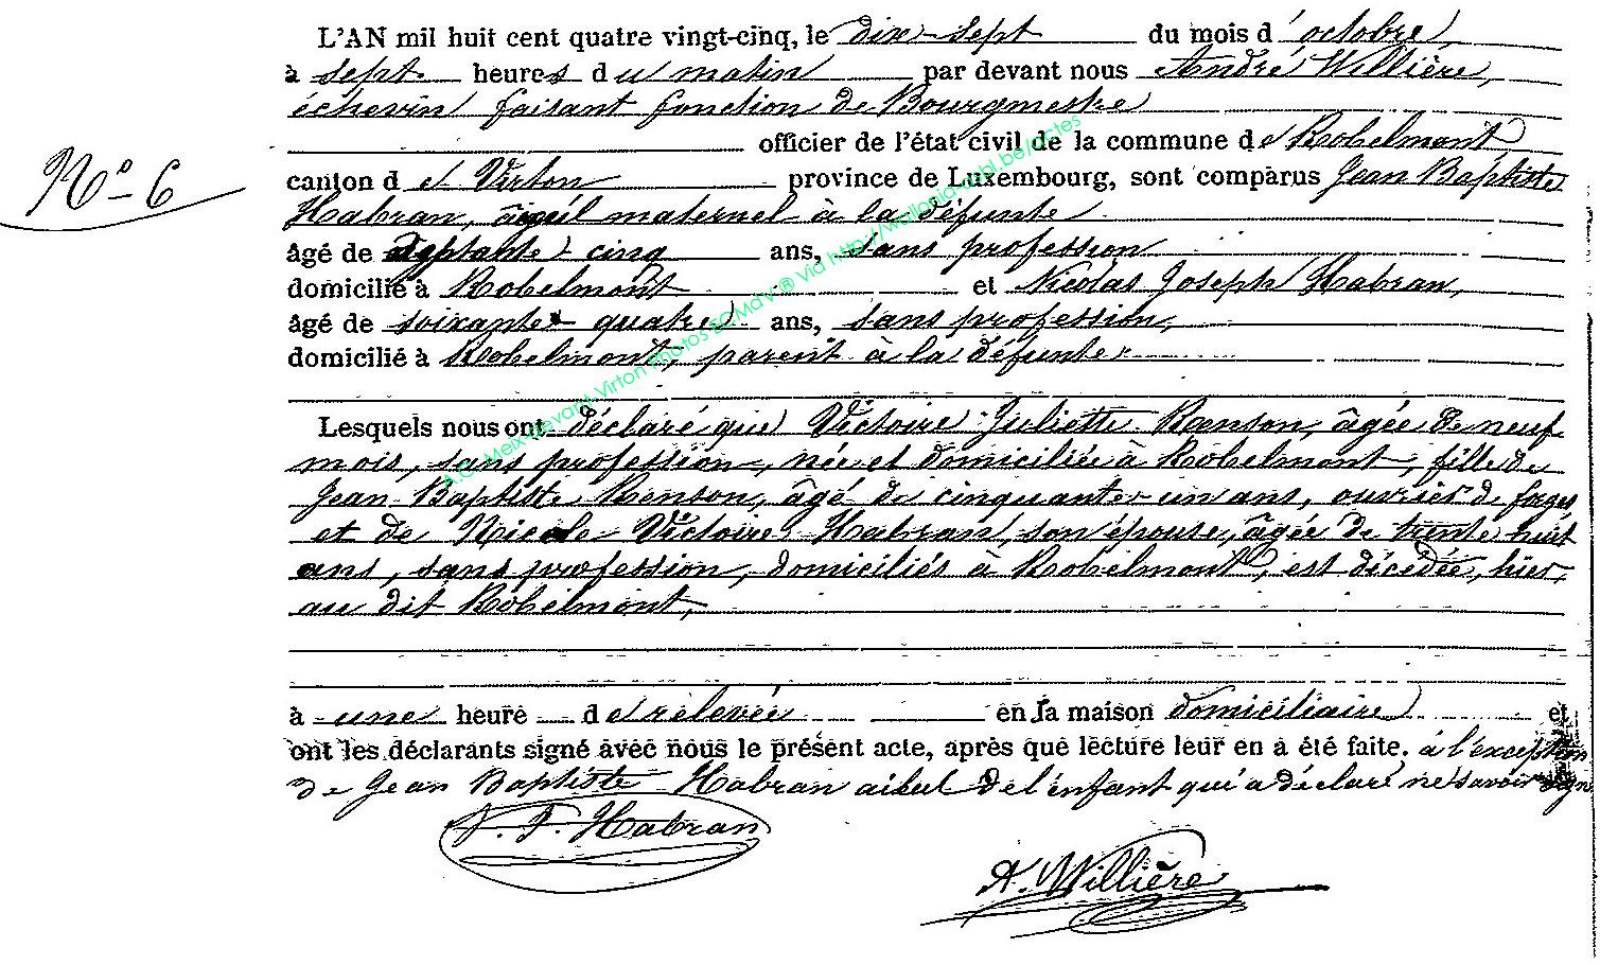 L'AN mil huit cent quatre vingt-cinq, le dix-sept du mois d'octobre,
à sept heures du matin par devant nous André Willière,
échevin faisant fonction de Bourgmestre
officier de l'état civil de la commune de Robelmont
N° 6
canton d et Virton province de Luxembourg, sont comparus Jean Baptiste
Habran, aïeul maternel à la défunte
âgé de septante cinq ans, sans profession
domicilié à Robelmont et Nicolas Joseph Habran,
âgé de soixante quatre ans, sans profession,
domicilié à Robelmont, parent à la défunte
Lesquels nous ont déclaré que Victoire Juliette Renson, âgée de neuf
mois, sans profession, née et domiciliée à Robelmont, fille de
Jean Baptiste Renson, âgé de cinquante un ans, ouvrier de forges
et de Nicole Victoire Habran, son épouse, âgée de trente huit
ans, sans profession, domiciliés à Robelmont, est décédée, hier,
au dit Robelmont,
à une heure de relevée en la maison domiciliaire et
ont les déclarants signé avec nous le présent acte, après que lecture leur en a été faite. à l'exception
de Jean Baptiste Habran aïeul de l'enfant qui a déclaré ne savoir sign
Habran
A. Willière
A.C. Meix-devant-Virton Photos EC.MdV ® Via http://wallonia-asbl.be/actes